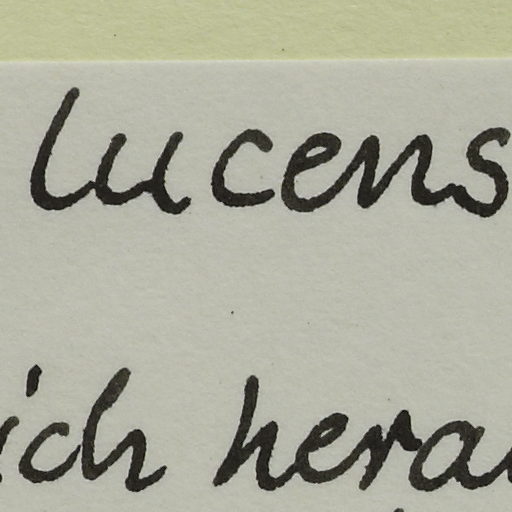 lucens
ich herau